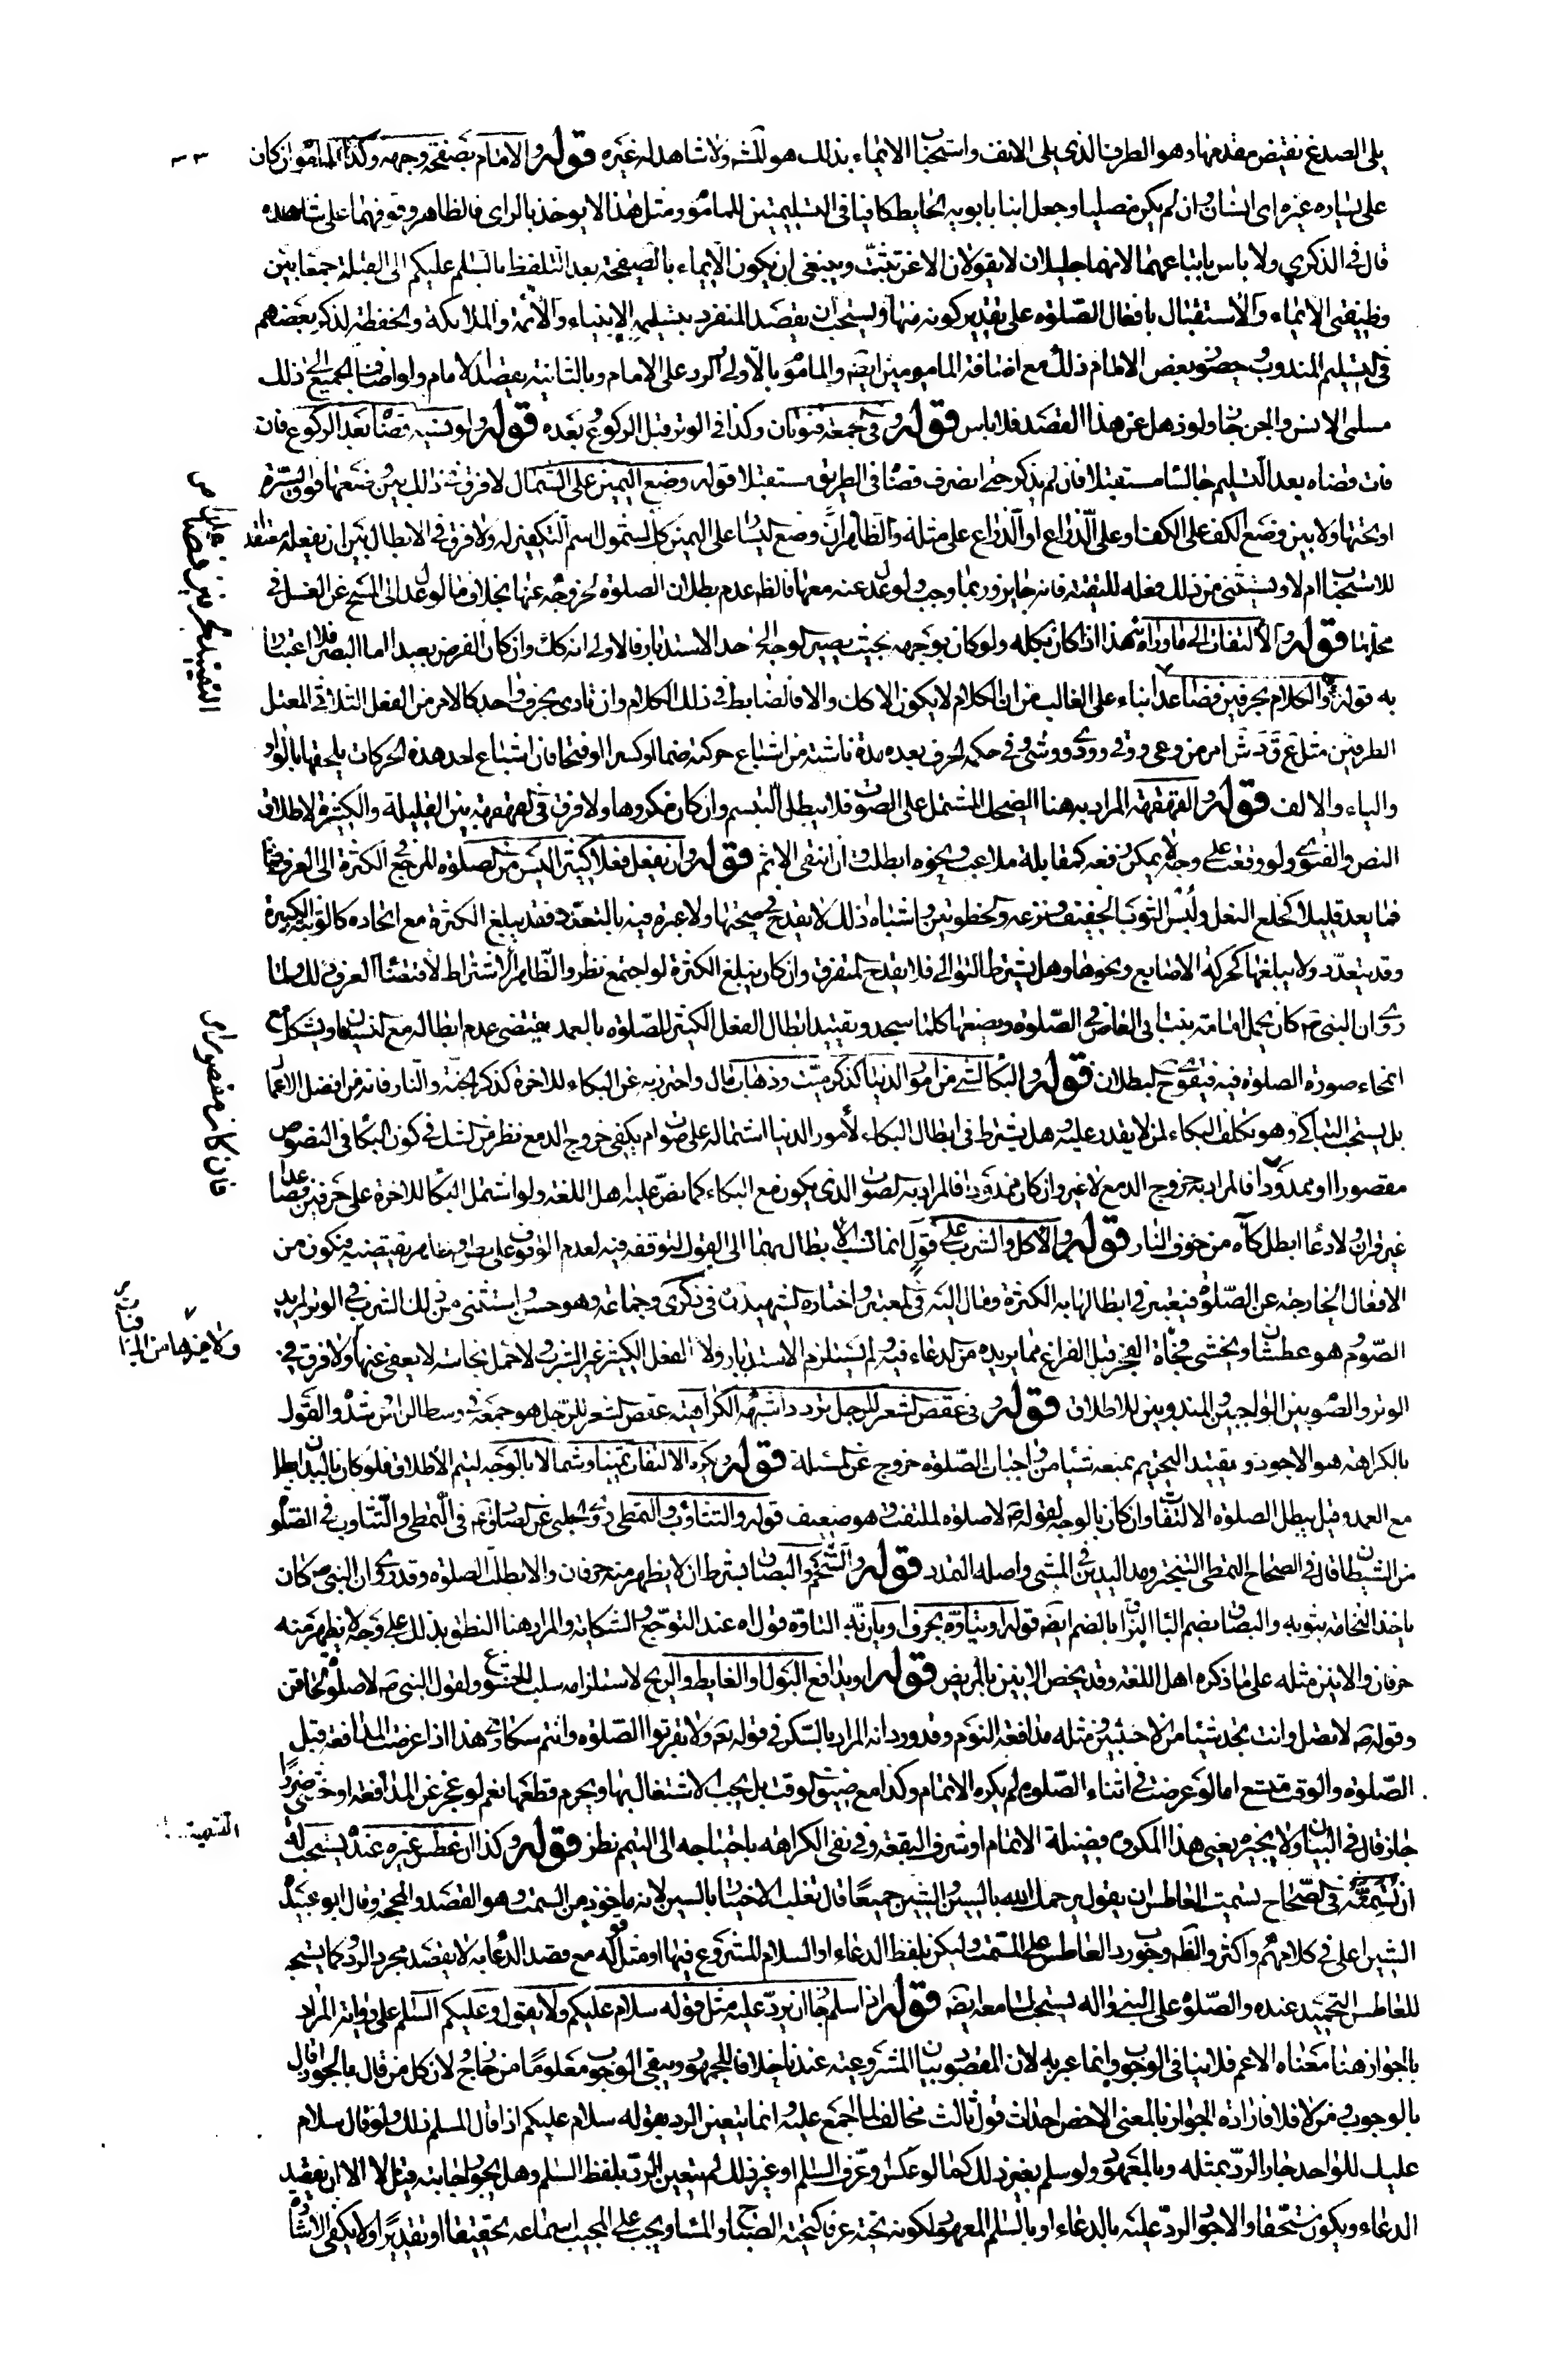 يلى الصدغ نقيض مقدمها وهو الطرف الذى يلى الانف واستحباب الايماء بذلك هو المشهور ولا شاهد له غيره قوله والامام بصفحة وجهه وكذا الماموم ان كان
على يساره غيره اى انسان وان لم يكن مصليا وجعل ابنا بابويه الحايط كافيا فى التسليمتين للماموم ومثل هذا لا يوخذ بالراى فالظاهر وقوفهما على شاهده
قال فى الذكرى ولا باس باتباعهما لانهما جليلان لا يقولان الا عن تثبت وينبغى ان يكون الايماء بالصفحة بعد التلفظ بالسلم عليكم الى القبلة جمعا بين
وظيفتى الايماء والاستقبال بافعال الصلوة على تقدير كونه منها ويستحب ان يقصد المنفرد بتسليمه الانبياء والائمة والملائكة والحفظة لذكر بعضهم
فى التسليم المندوب وحضور بعض والامام ذلك مع اضافة المامومين ايضا والماموم بالاولى الرد على الامام وبالثانية يقصد الامام ولو اضاف الجميع الى ذلك
مسلمى الانس والجن جاز ولو ذهل عن هذا القصد فلا باس قوله وفى الجمعة قنوتان وكذا فى الوتر قبل الركوع بعده قوله ولو نسيه قضاه بعد الركوع فان
فات قضاه بعد التسليم جالسا مستقبلا فان لم يذكر حتى انصرف قضاه فى الطريق مستقبلا قوله وضع اليمين على الشمال لا فرق فى ذلك بين وضعهما فوق السرة
او تحتها ولا بين وضع الكف على الكف او على الذراع او الذراع على مثله والظاهر ان وضع اليسار على اليمين كك لشمول اسم التكفير له ولا فرق فى الابطال بين ان يفعله معتقد
للاستحباب ام لا ويستثنى من ذلك فعله للتقية فانه جايز وربما وجب ولو عدل عنه معها فالظ عدم بطلان الصلوة لخروجه عنها بخلاف ما لو عدل الى المسح عن الغسل فى
محلها قوله والالتفات الى ما وراءه هذا اذا كان بكله ولو كان بوجهه بحيث يصير الوجه الى حد الاستدبار فالاولى انه كك وان كان الفرض بعيدا اما البصر فلا اعتبار
به قوله والكلام بحرفين فصاعدا بناء على الغالب من ان الكلام لا يكون الا كك والا فالضابط فى ذلك الكلام وان تادى بحرف واحد كالامر من الفعل الثلاثى المعتل
الطرفين مثل ع ق د ش امر من وعى ووقى وودى ووشى وفى حكمه الحرف بعده مدة ناشئة من اشباع حركته ضما او كسرا او فتحا فان اشباع احد هذه الحركات يلحقها بالواو
والياء والالف قوله والقهقهة المراد به هنا الضحك المشتمل على الصوت فلا يبطل التبسم وان كان مكروها ولا فرق فى القهقهة بين القليلة والكثيرة لاطلاق
النص والفتوى ولو وقعت على وجه لا يمكن دفعه كمقابلة ملاعب ونحوه ابطلت وان انتفى الاثم قوله وان يفعل فعلا كثيرا ليس من الصلوة المرجع فى الكثرة الى العرف فما
فما يعد قليلا كخلع النعل ولبس الثوب الخفيف ونزعه والخطوتين واشباه ذلك لا يقدح فى صحتها ولا عبرة فيه بالتعدد فقد يبلغ الكثرة مع اتحاده كالوثبة الكبيرة
وقد يتعدد ولا يبلغها كحركة الاصابع ونحوها وهل يشترط التوالى فلا يقدح المتفرق وان كان يبلغ الكثرة لو اجتمع نظر والظاهر الاشتراط لاقتضاء العرف ذلك ولما
روى ان النبى ص كان يحمل امامة بنت ابى العاص فى الصلوة ويضعها كلما سجد وتقييد ابطال الفعل الكثير للصلوة بالعمد يقتضى عدم ابطاله مع النسيان ويشكل مع
انمحاء صورة الصلوة فيه فيقوى البطلان قوله والبكاء لشىء من امور الدنيا كذكر ميت وذهاب مال واحترز به عن البكاء للاخرة كذكر الجنة والنار فانه من افضل الاعمال
بل يستحب التباكى وهو تكلف البكاء لمن لا يقدر عليه وهل يشترط فى ابطال البكاء لامور الدنيا اشتماله على صوت ام يكفى خروج الدمع نظر من الشك فى كون البكا فى النصوص
مقصورا او ممدودا فالمراد به خروج الدمع لا غير وان كان ممدودا فالمراد به الصوت الذى يكون مع البكاء كما نص عليه اهل اللغة ولو اشتمل البكا للاخرة على حرفين فصاعدا
غير قران ولا دعا ابطل كآه من خوف النار قوله والاكل والشرب على قول انما نسب الابطال بهما الى القول لتوقفه فيه لعدم الوقوف على نص يقتضيه فيكون من
الافعال الخارجة عن الصلوة فيعتبر فى ابطالها به الكثرة ومال اليه فى المعتبر واختاره الشهيد فى الذكرى وجماعة وهو حسن ويستثنى من ذلك الشرب فى الوتر لمريد
الصوم وهو عطشان ويخشى فجاة الفجر قبل الفراغ مما يريده من الدعاء فيه ولم يستلزم الاستدبار ولا الفعل الكثير غير الشرب ولا حمل نجاسة لا يعفى عنها ولا فرق فى
الوتر والصوم بين الواجبين والمندوبين للاطلاق قوله وفى عقص الشعر للرجل تردد اشبهه الكراهية عقص الشعر للرجل هو جمعه فى وسط الراس وشده والقول
بالكراهة هو الاجود وتقييد التحريم بمنعه شيئا من واجبات الصلوة خروج عن المسئلة قوله ويكره الالتفات يمينا وشمالا بالوجه ليتم الاطلاق فلو كان بالبدن ابطل
مع العمد وقيل يبطل الصلوة الالتفات وان كان بالوجه لقوله ص لا صلوة لملتفت وهو ضعيف قوله والتثاوب والتمطى روى الحلبى عن الصادق ع فى التمطى والتثاوب فى الصلوة
من الشيطان قال فى الصحاح التمطى التبختر ومد اليدين فى المشى واصله التمدد قوله والتنخم والبصاق بشرط ان لا يظهر منه حرفان والا بطلت الصلوة وقد روى ان النبى ص كان
ياخذ النخامة بثوبه والبصاق بضم الباء البزاق بالضم ايض قوله او يتاوه بحرف او يان به التاوه قول اه عند التوجع والشكاية والمراد هنا النطق بذلك على وجه لا يظهر منه
حرفان والانين مثله على ما ذكره اهل اللغة وقد يخص الانين بالمريض قوله او يدافع البول او الغايط والريح لاستلزامه سلب الخشوع ولقول النبى ص لا صلوة لحاقن
وقوله ص لا تصل وانت تجد شيئا من الاخبثين ومثله مدافعة النوم وقد ورد انه المراد بالسكر فى قوله تع ولا تقربوا الصلوة وانتم سكارى وهذا اذا عرضت المدافعة قبل
الصلوة والوقت متسع اما لو عرضت فى اثناء الصلوة لم يكره الاتمام وكذا مع ضيق الوقت بل يجب الاشتغال بها ويحرم قطعها نعم لو عجز عن المدافعة او خشى ضررا
جاز قال فى البيان ولا يجبره يعنى هذا المكروه فضيلة الايتمام او شرف البقعة وفى نفى الكراهة باحتياجه الى التيمم نظر قوله وكذا ان عطس غيره عنده يستحب له
ان يسمته فى الصحاح تسميت العاطس ان يقول يرحمك الله بالسين والشين جميعا قال ثعلب الاختيار بالسين لانه ماخوذ من السمت وهو القصد والمحجة وقال ابو عبيد
الشين اعلى فى كلامهم واكثر والظ وجوب رد العاطس على المسمت وليكن بلفظ الدعاء او السلام المشروع فيها او مثل قوله مع قصد الدعا به لا بقصد مجرد الرد وكما يستحب
للعاطس التحميد عنده والصلوة على النبى واله يستحب لسامعه ايض قوله اذا سلم جاز ان يرد عليه مثل قوله سلام عليكم ولا يقول وعليكم السلم على رواية المراد
بالجواز هنا معناه الاعم فلا ينافى الوجوب وانما عبر به لان المقصود بيان المشروعية عندنا خلافا للجمهور ويبقى الوجوب معلوما من خارج لان كل من قال بالجواز قال
بالوجوب ومن لا فلا فارادة الجواز بالمعنى الاخص احداث قول ثالث مخالف لما اجمع عليه وانما يتعين الرد بقوله سلام عليكم اذا قال المسلم ذلك ولو قال سلام
عليك للواحد جاز الرد بمثله وبالمعهود ولو سلم بغير ذلك كما لو عكس وعرف السلم او غير ذلك لم يتعين الرد بلفظ السلم وهل يجوز اجابته قيل لا الا ان يقصد
الدعاء ويكون مستحقا والاجود الرد عليه بالدعاء او بالسلم المعهود لكونه تحية عرفا كتحية الصباح والمساء ويجب على المجيب اسماعه تحقيقا او تقديرا ولا يكفى الاشارة
فان كان مقصورا ص